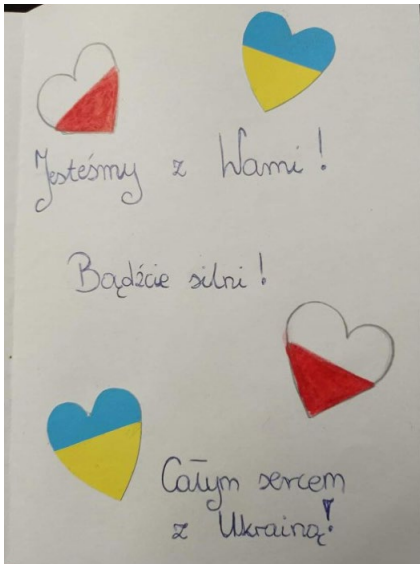 Jesteśmy z Wami!
Bądźcie silni!
Całym sercem
z Ukrainą!